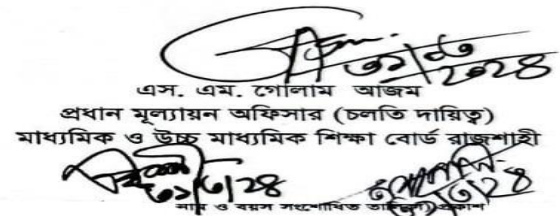 ৩১/০৩/২০২৪
এস. এম. গোলাম আজম
প্রধান মূল্যায়ন অফিসার (চলতি দায়িত্ব)
মাধ্যমিক ও উচ্চ মাধ্যমিক শিক্ষা বোর্ড রাজশাহী
৩১/৩/২৪
নাম ও বয়স সংশোধিত প্রকাশ